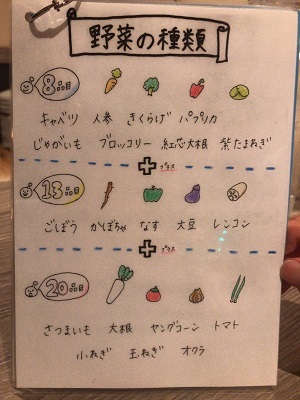 野菜の種類
8品目
キャベツ 人参 きくらげ パプリカ
じゃがいも ブロッコリー 紅芯大根 紫たまねぎ
プラス
13品目
ごぼう かぼちゃ なす 大豆 レンコン
プラス
20品目
さつまいも 大根 ヤングコーン トマト
小ねぎ 玉ねぎ オクラ